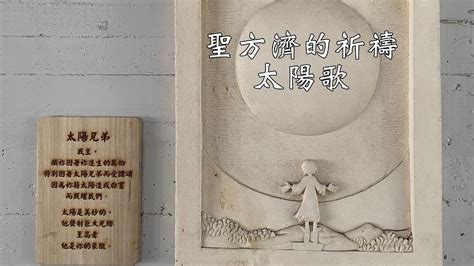 聖方濟的祈禱
太陽歌
太陽兄弟
我主,
願祢因著祢造生的萬物
特別因著太陽兄弟而受讚頌
因為祢藉太陽造成白晝
而照耀我們。
太陽是美妙的,
他發射巨大光輝
至高者
他是祢的象徵。